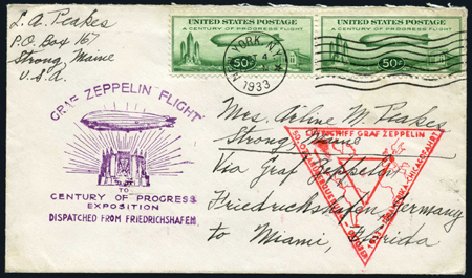 L. A. Peakes
P.O. Box 167
Strong, Maine
U.S.A
UNITED STATES POSTAGE
A CENTURY OF PROGRESS FLIGHT
50c
UNITED STATES POSTAGE
A CENTURY OF PROGRESS FLIGHT
50c
NEW YORK, N.Y.
1933
GRAF ZEPPELIN FLIGHT
TO
CENTURY OF PROGRESS
EXPOSITION
DISPATCHED FROM FRIEDRICHSHAFEN
Mrs. Arline M. Peakes
Strong, Maine
Via Graf Zeppelin
Friedrichshafen, Germany
to Miami, Florida
LUFTSCHIFF GRAF ZEPPELIN
CHICAGOFAHRT